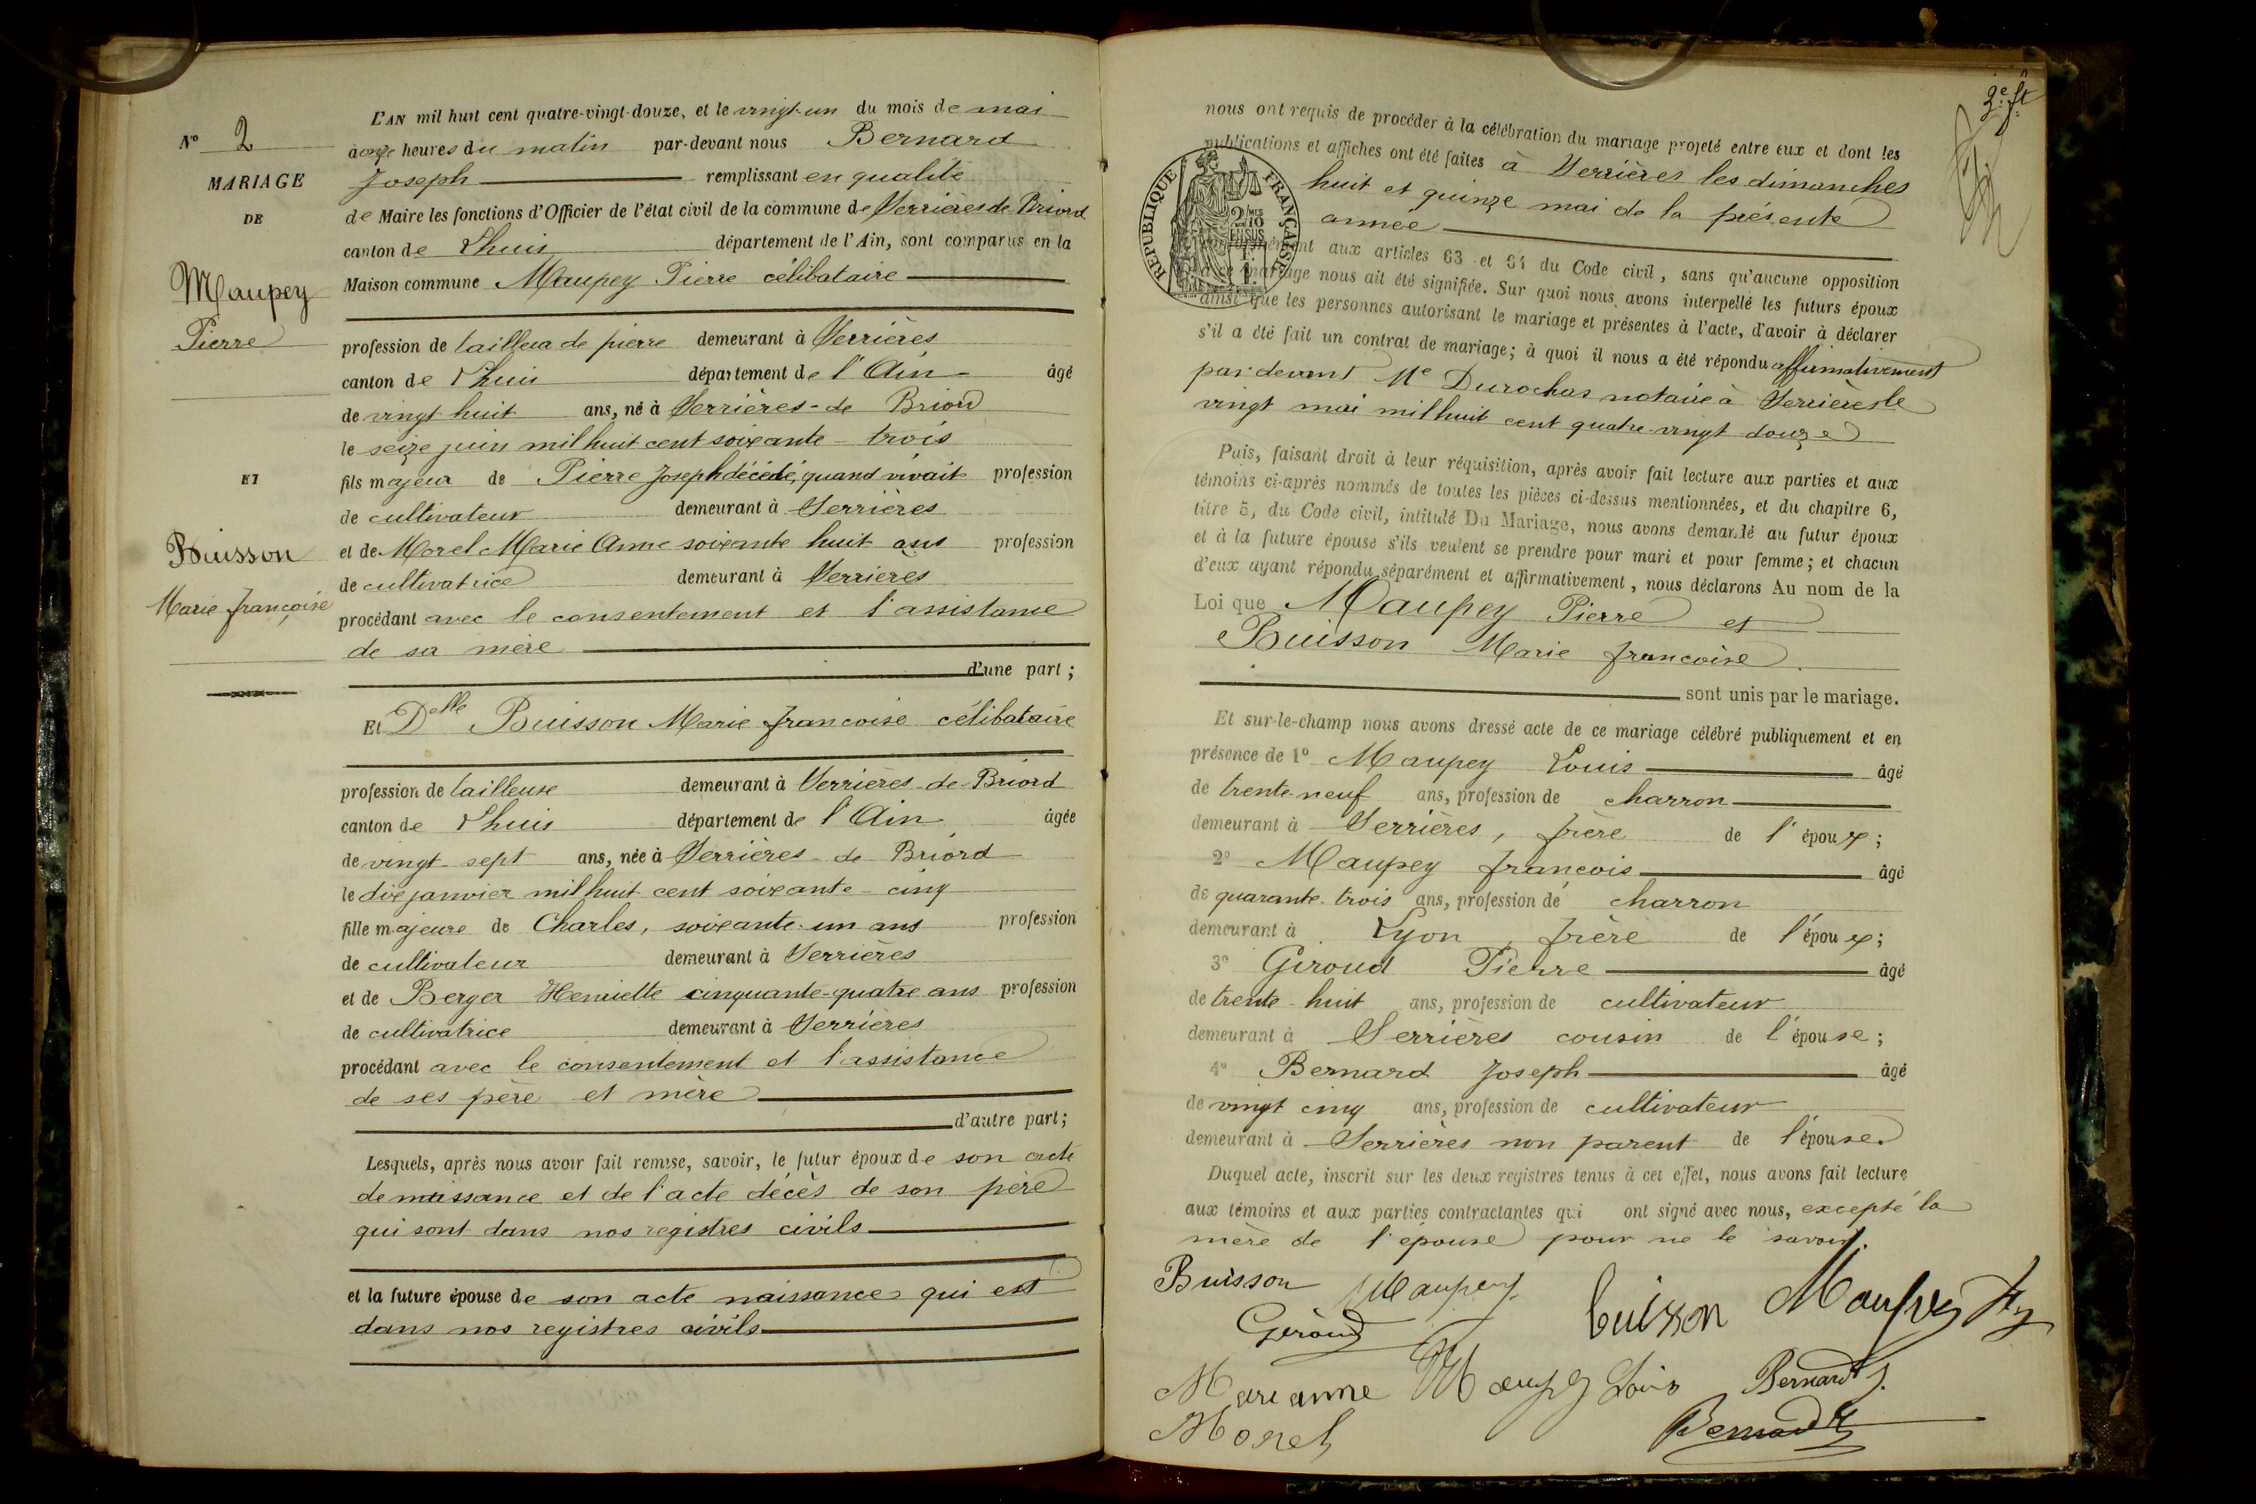 N° 2
MARIAGE
DE
Maupey
Pierre
ET
Buisson
Marie françoise
L'AN mil huit cent quatre-vingt-douze, et le vingt-un du mois de mai
à onze heures du matin par-devant nous Bernard
Joseph remplissant en qualité
de Maire les fonctions d'Officier de l'état civil de la commune de Serrières de Briord
canton de Lhuis département de l'Ain, sont comparus en la
Maison commune Maupey Pierre célibataire
profession de tailleur de pierre demeurant à Serrières
canton de Lhuis département de l'Ain âgé
de vingt huit ans, né à Serrières-de Briord
le seize juin mil huit cent soixante-trois
fils majeur de Pierre Joseph décédé, quand vivait profession
de cultivateur demeurant à Serrières
et de Morel Marie Anne soixante huit ans profession
de cultivatrice demeurant à Serrières
procédant avec le consentement et l'assistance
de sa mère
d'une part;
Et Delle Buisson Marie francoise célibataire
profession de tailleuse demeurant à Serrières-de-Briord
canton de Lhuis département de l'Ain âgée
de vingt-sept ans, née à Serrières-de Briord
le dix janvier mil huit cent soixante-cinq
fille majeure de Charles, soixante-un ans profession
de cultivateur demeurant à Serrières
et de Berger Henriette cinquante-quatre ans profession
de cultivatrice demeurant à Serrières
procédant avec le consentement et l'assistance
de ses père et mère
d'autre part;
Lesquels, après nous avoir fait remise, savoir, le futur époux de son acte
de naissance et de l'acte décès de son père
qui sont dans nos registres civils
et la future épouse de son acte naissance qui est
dans nos registres civils
2e ft
nous ont requis de procéder à la célébration du mariage projeté entre eux et dont les
publications et affiches ont été faites à Serrières les dimanches
huit et quinze mai de la présente
année
REPUBLIQUE FRANÇAISE
2/10
EN SUS
aux articles 63 et 64 du Code civil, sans qu'aucune opposition
à ce mariage nous ait été signifiée. Sur quoi nous avons interpellé les futurs époux
ainsi que les personnes autorisant le mariage et présentes à l'acte, d'avoir à déclarer
s'il a été fait un contrat de mariage; à quoi il nous a été répondu affirmativement
par devant Me Durochas notaire à Serrières le
vingt mai mil huit cent quatre-vingt douze
Puis, faisant droit à leur réquisition, après avoir fait lecture aux parties et aux
témoins ci-après nommés de toutes les pièces ci-dessus mentionnées, et du chapitre 6,
titre 5, du Code civil, intitulé Du Mariage, nous avons demandé au futur époux
et à la future épouse s'ils veulent se prendre pour mari et pour femme; et chacun
d'eux ayant répondu séparément et affirmativement, nous déclarons Au nom de la
Loi que Maupey Pierre et
Buisson Marie francoise
sont unis par le mariage.
Et sur-le-champ nous avons dressé acte de ce mariage célébré publiquement et en
présence de 1° Maupey Louis âgé
de trente-neuf ans, profession de charron
demeurant à Serrières, frère de l'époux;
2° Maupey francois âgé
de quarante-trois ans, profession de charron
demeurant à Lyon, frère de l'époux;
3° Giroud Pierre âgé
de trente-huit ans, profession de cultivateur
demeurant à Serrières cousin de l'épouse;
4° Bernard Joseph âgé
de vingt cinq ans, profession de cultivateur
demeurant à Serrières non parent de l'épouse.
Duquel acte, inscrit sur les deux registres tenus à cet effet, nous avons fait lecture
aux témoins et aux parties contractantes qui ont signé avec nous, excepté la
mère de l'épouse pour ne le savoir.
Buisson Maupey buisson Maupey fs
Giroud
Mari anne Maupey Louis Bernard J.
Morel Bernard